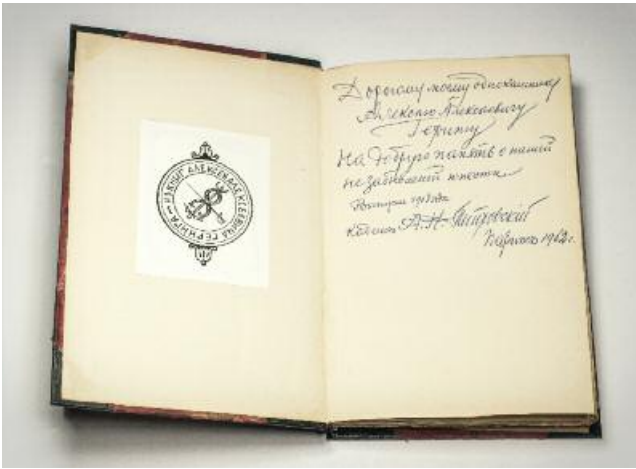 ИЗ КНИГ АЛЕКСЕЯ АЛЕКСЕЕВИЧА ГЕРИНГА
Дорогому моему однокашнику
Алексею Алексеевичу
Герингу
На добрую память о нашей
незабвенной юности
года
А.Н.
1962 г.